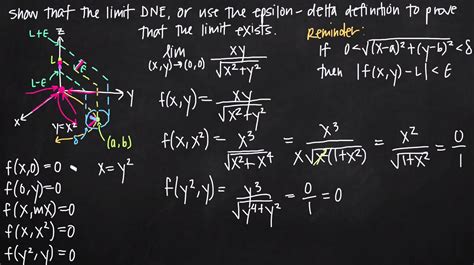 show that the limit DNE, or use the epsilon-delta definition to prove
that the limit exists.
Reminder:
If 0<√((x-a)²+(y-b)²)<δ
then |f(x,y)-L|<ε
lim (x,y)→(0,0) xy/√(x²+y²)
f(x,y)= xy/√(x²+y²)
f(x,x²)= x³/√(x²+x⁴) = x³/(x√(x²(1+x²))) = x²/√(1+x²) = 0/1
f(y²,y)= y³/√(y⁴+y²) = 0/1 = 0
z
L+ε
L
L-ε
y
x
y=x²
δ
(a,b)
x=y²
f(x,0)=0
f(0,y)=0
f(x,mx)=0
f(x,x²)=0
f(y²,y)=0